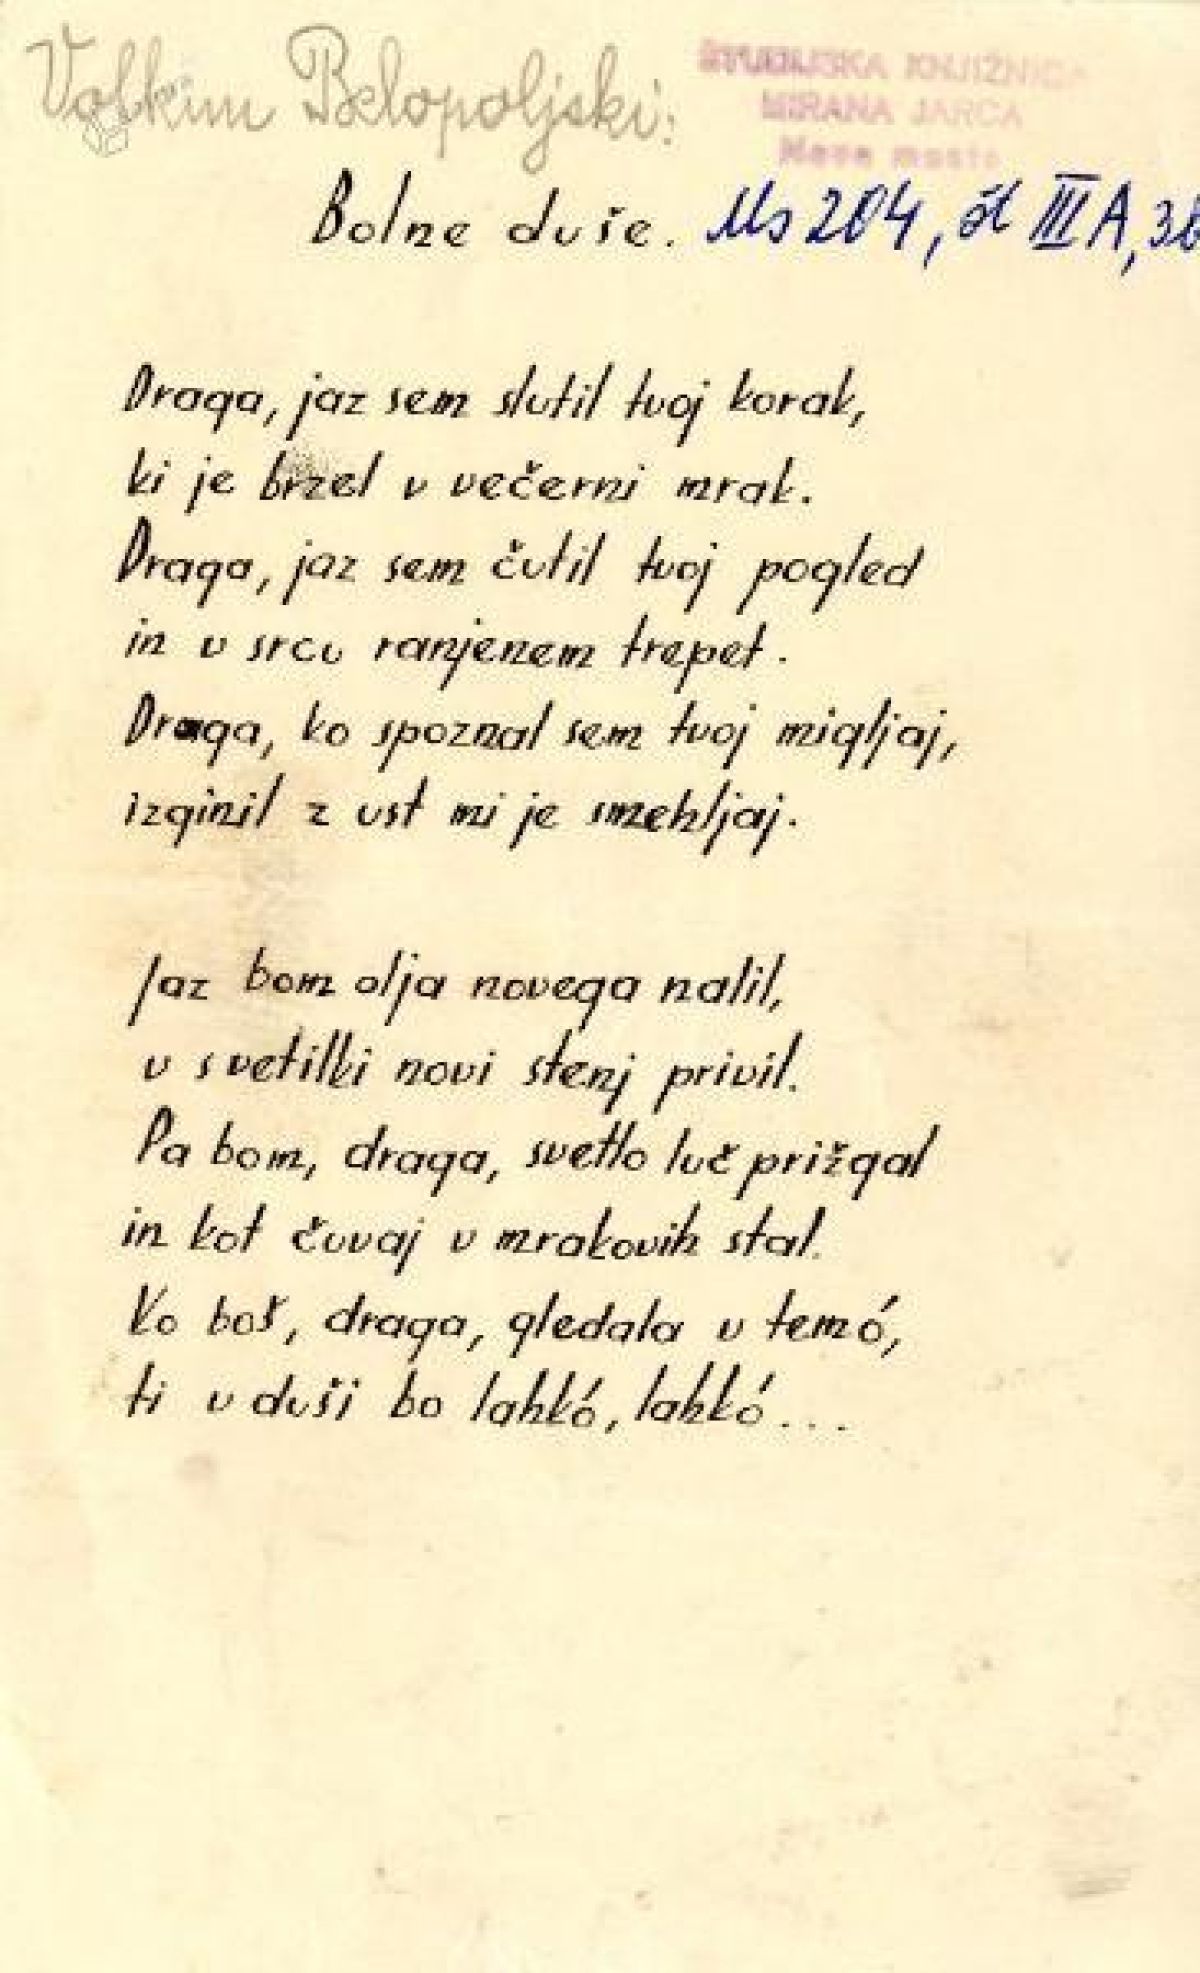 Volkim Belopoljski:
ŠTUDIJSKA KNJIŽNICA
MIRANA JARCA
Novo mesto
Bolne duše. Ms 204, št III A, 36
Draga, jaz sem slutil tvoj korak,
ki je brzel v večerni mrak.
Draga, jaz sem čutil tvoj pogled
in v srcu ranjenem trepet.
Draga, ko spoznal sem tvoj migljaj,
izginil z ust mi je smehljaj.
Jaz bom olja novega nalil,
v svetilki novi stenj privil.
Pa bom, draga, svetlo luč prižgal
in kot čuvaj v mrakovih stal.
Ko boš, draga, gledala v temó,
ti v duši bo lahkó, lahkó...